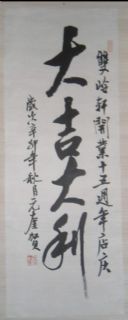 雙峰軒開業十五週年店庆
大吉大利
歲次辛卯年秋月元奎賀